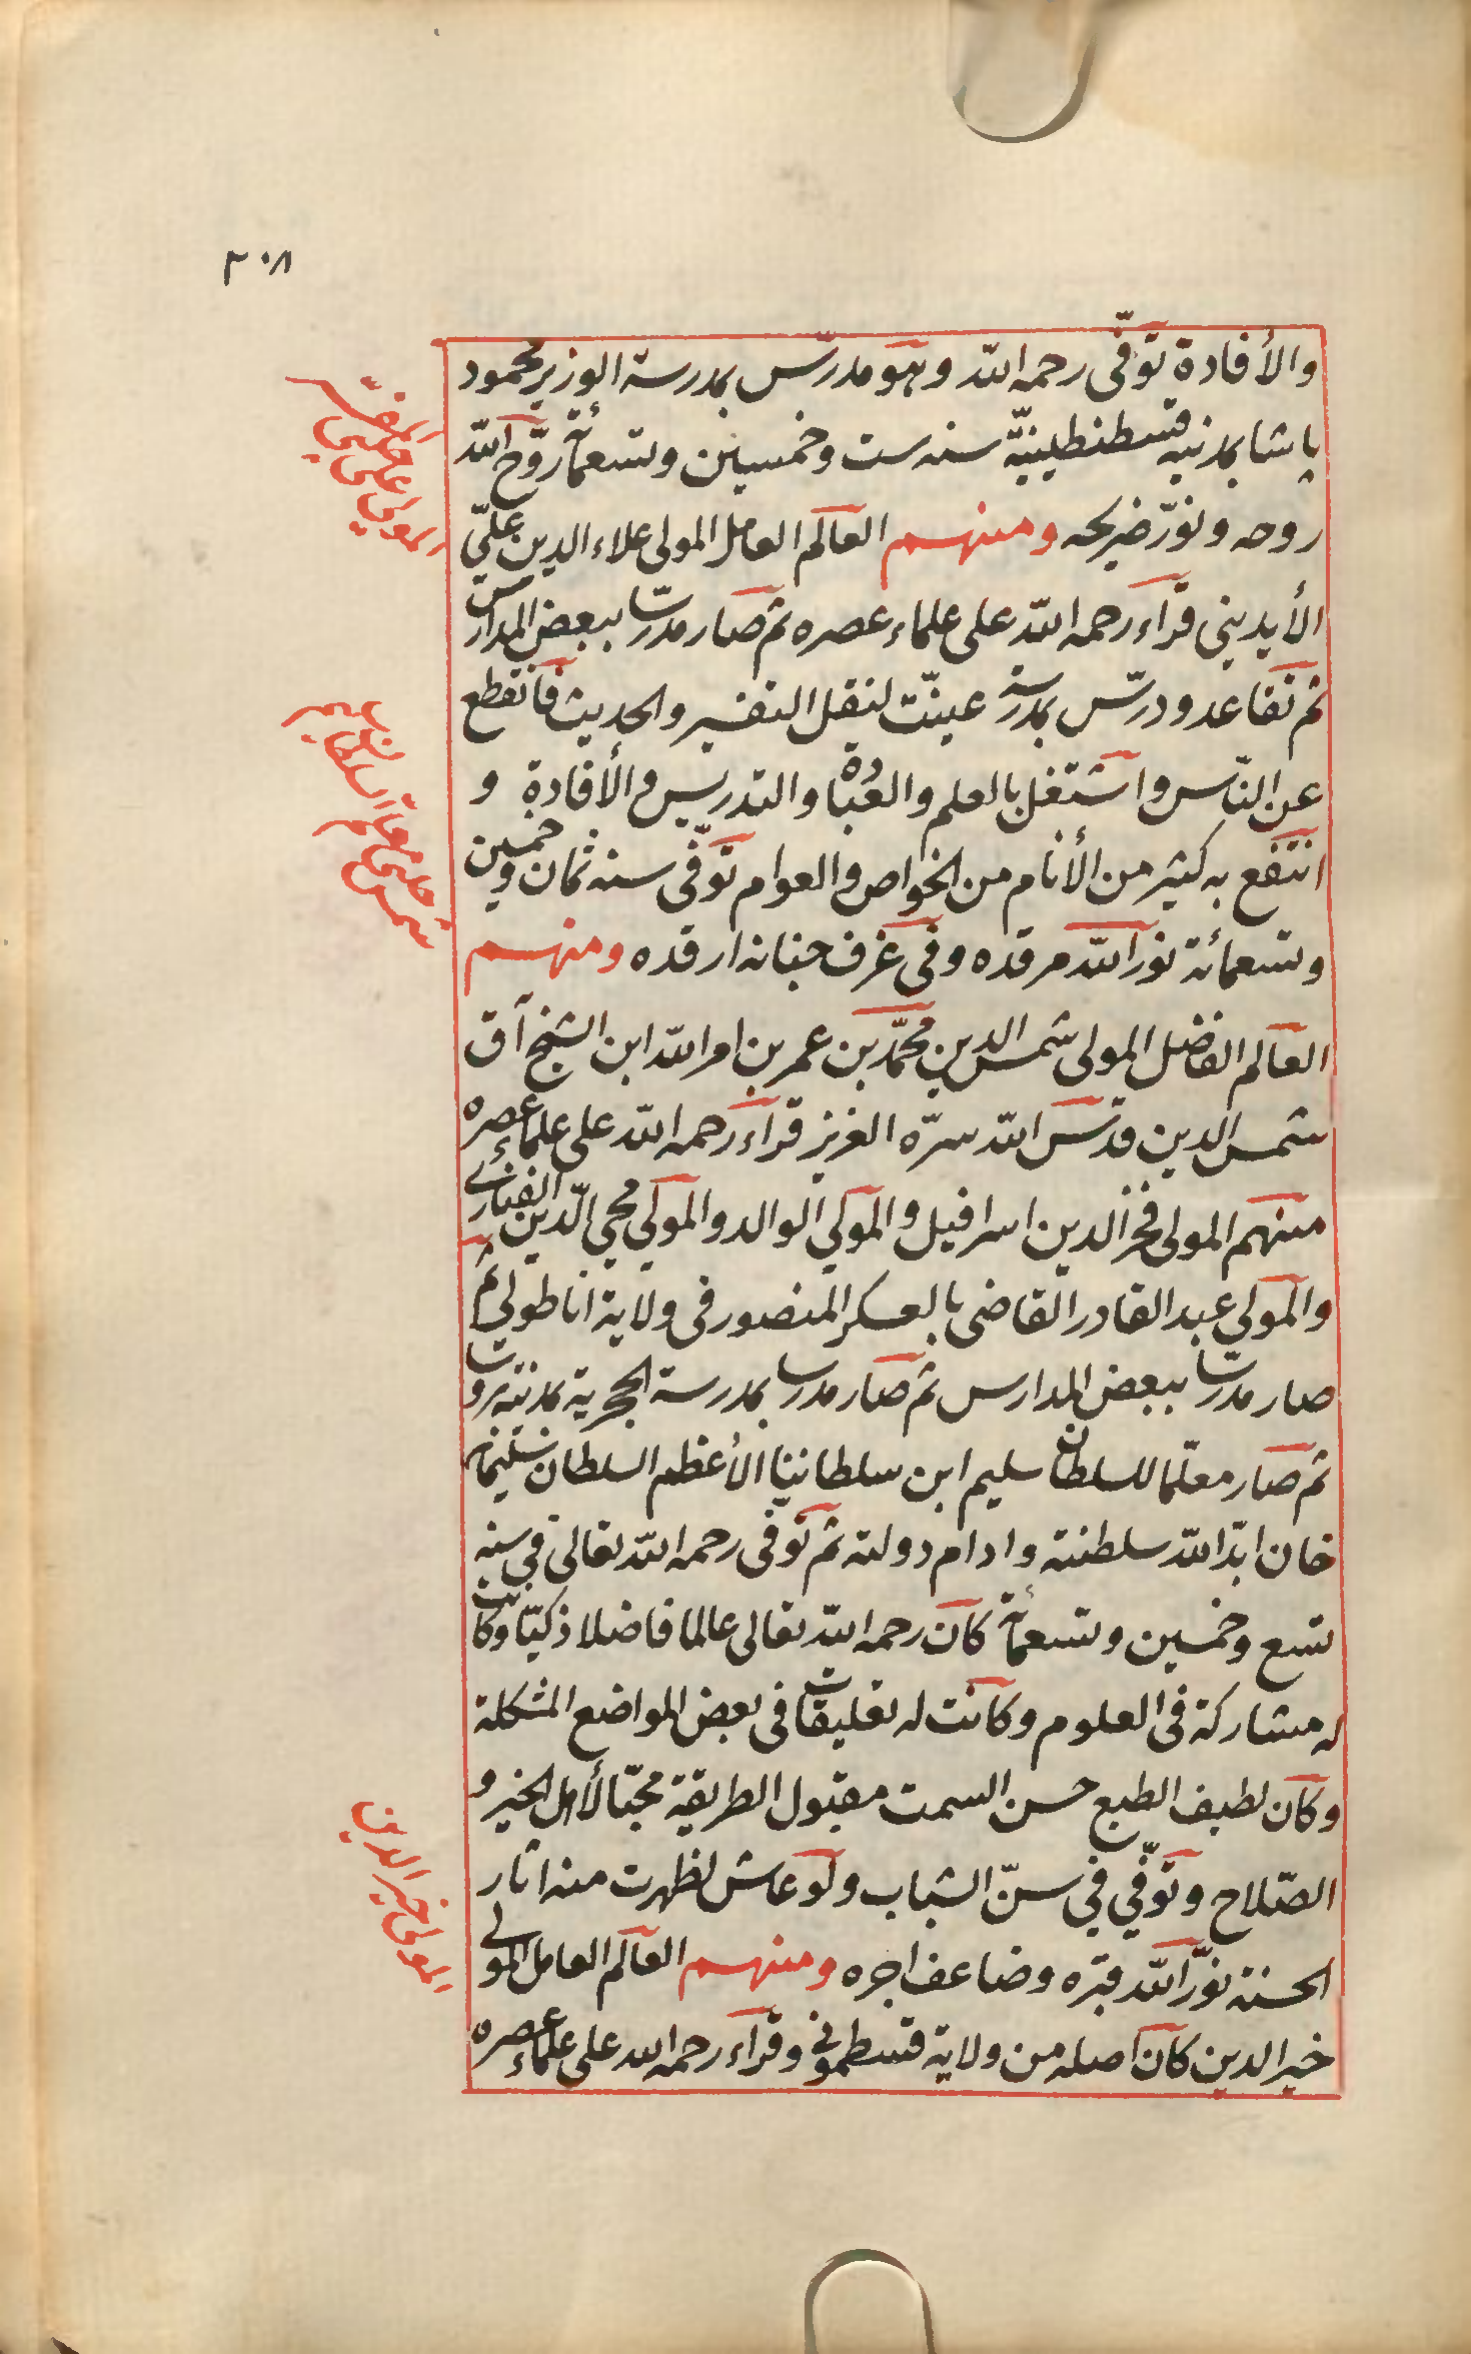 ٣٠٨
والأفادة توفّى رحمه الله وهو مدرّس بمدرسة الوزير محمود
باشا بمدنيه قسطنطينيّة سنه ست وخمسين وتسعمأئة روّح الله
روحه ونوّر ضريحه ومنهم العالم العامل المولى علاء الدين علىّ
الأيديني قراء رحمه الله على علماء عصره ثم صار مدرّسا ببعض المدارس
ثم تقاعد ودرّس بمدرسة عينّت لنقل التفسير والحديث فانقطع
عن النّاس واشتغل بالعلم والعبادة والتدريس والأفادة و
انتفع به كثير من الأنام من الخواص والعوام توفّى سنه ثمان وخمسين
وتسعمائة نور الله مرقده وفى غرف جنانه ارقده ومنهم
العالم الفاضل المولى شمس الدين محمّد بن عمر بن امر الله ابن الشيخ آق
شمس الدين قدّس الله سرّه العزيز قراء رحمه الله على علماء عصره
منهم المولى فخر الدين اسرافيل والمولى الوالد والمولى محيى الدّين الفنارى
والمولى عبد القادر القاضى بالعسكر المنصور فى ولاية اناطولى ثم
صار مدرّسا ببعض المدارس ثم صار مدرسا بمدرسة الحجرية بمدنيّه بروسا
ثم صار معلّما للسلطان سليم ابن سلطاننا الأعظم السلطان سليمان
خان ابّد الله سلطنته وادام دولته ثم توفى رحمه الله تعالى فى سنه
تسع وخمسين وتسعمأئة كان رحمه الله تعالى عالما فاضلا ذكيّا وكانت
له مشاركة فى العلوم وكانت له تعليقات فى بعض المواضع المشكلة
وكان لطيف الطبع حسن السمت مقبول الطريقة محبّا لأهل الخير و
الصّلاح وتوفّي في سنّ الشباب ولو عاش لظهرت منه اثار
الحسنة نوّر الله قبره وضاعف اجره ومنهم العالم العامل المولى
خير الدين كان اصله من ولاية قسطمونى وقراء رحمه الله على علماء عصره
المولى خير الدين